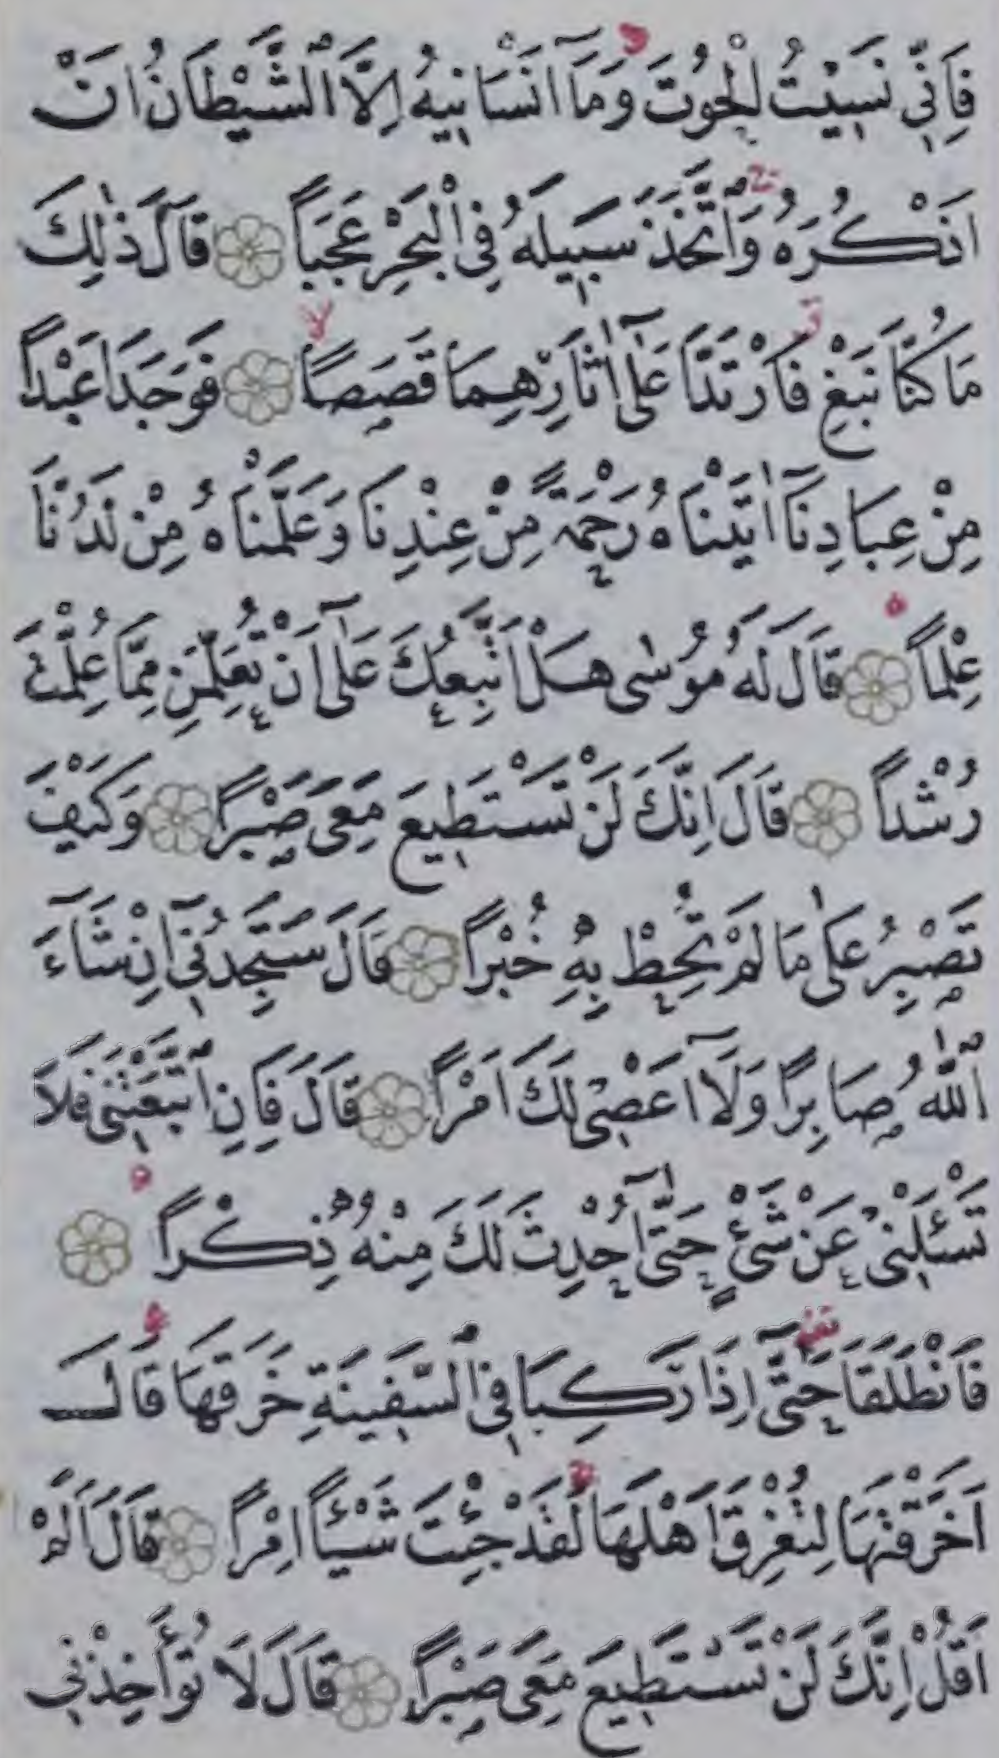 فَاِنّ۪ي نَس۪يتُ الْحُوتَ وَمَٓا اَنْسَان۪يهُ اِلَّا الشَّيْطَانُ اَنْ
اَذْكُرَهُ وَاتَّخَذَ سَب۪يلَهُ فِي الْبَحْرِ عَجَباً قَالَ ذٰلِكَ
مَا كُنَّا نَبْغِ فَارْتَدَّا عَلٰٓى اٰثَارِهِمَا قَصَصاً فَوَجَدَا عَبْداً
مِنْ عِبَادِنَٓا اٰتَيْنَاهُ رَحْمَةً مِنْ عِنْدِنَا وَعَلَّمْنَاهُ مِنْ لَدُنَّا
عِلْماً قَالَ لَهُ مُوسٰى هَلْ اَتَّبِعُكَ عَلٰٓى اَنْ تُعَلِّمَنِ مِمَّا عُلِّمْتَ
رُشْداً قَالَ اِنَّكَ لَنْ تَسْتَط۪يعَ مَعِيَ صَبْراً وَكَيْفَ
تَصْبِرُ عَلٰى مَا لَمْ تُحِطْ بِه۪ خُبْراً قَالَ سَتَجِدُن۪ٓي اِنْ شَٓاءَ
اللّٰهُ صَابِراً وَلَٓا اَعْص۪ي لَكَ اَمْراً قَالَ فَاِنِ اتَّبَعْتَن۪ي فَلَا
تَسْـَٔلْن۪ي عَنْ شَيْءٍ حَتّٰٓى اُحْدِثَ لَكَ مِنْهُ ذِكْراً
فَانْطَلَقَا حَتّٰٓى اِذَا رَكِبَا فِي السَّف۪ينَةِ خَرَقَهَا قَالَ
اَخَرَقْتَهَا لِتُغْرِقَ اَهْلَهَا لَقَدْ جِئْتَ شَيْـٔاً اِمْراً قَالَ اَلَمْ
اَقُلْ اِنَّكَ لَنْ تَسْتَط۪يعَ مَعِيَ صَبْراً قَالَ لَا تُؤَاخِذْن۪ي